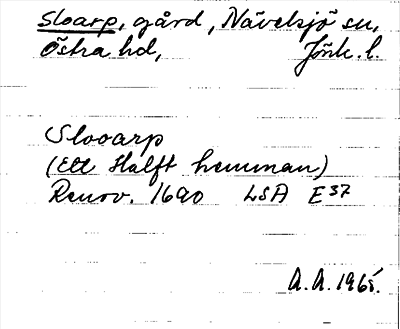 Sloarp, gård, Nävelsjö sn,
Östra hd, Jönk. l.
Slooarp
(Ett Halft hemman)
Renov. 1690 LSA E37
A.A. 1965.